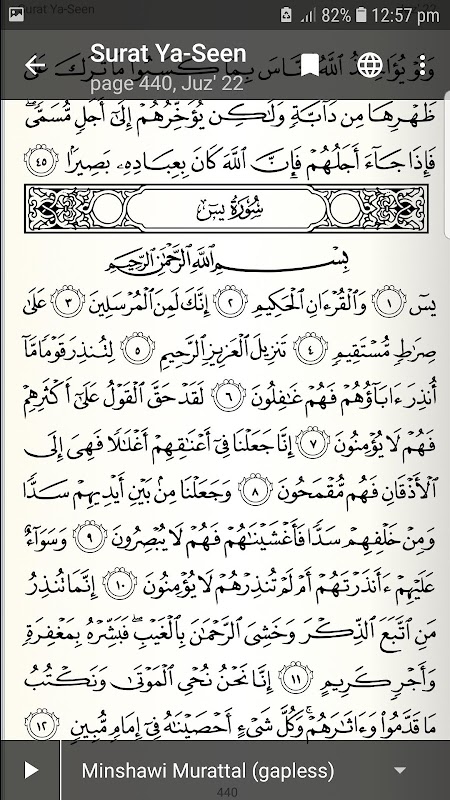 82% 12:57 pm
Surat Ya-Seen
page 440, Juz' 22
ظَهْرِهَا مِن دَآبَّةٍ وَلَٰكِن يُؤَخِّرُهُمْ إِلَىٰٓ أَجَلٍ مُّسَمًّى ۖ
فَإِذَا جَآءَ أَجَلُهُمْ فَإِنَّ ٱللَّهَ كَانَ بِعِبَادِهِۦ بَصِيرًۢا ٤٥
سُورَةُ يسٓ
بِسْمِ ٱللَّهِ ٱلرَّحْمَٰنِ ٱلرَّحِيمِ
يسٓ ١ وَٱلْقُرْءَانِ ٱلْحَكِيمِ ٢ إِنَّكَ لَمِنَ ٱلْمُرْسَلِينَ ٣ عَلَىٰ
صِرَٰطٍ مُّسْتَقِيمٍ ٤ تَنزِيلَ ٱلْعَزِيزِ ٱلرَّحِيمِ ٥ لِتُنذِرَ قَوْمًا مَّآ
أُنذِرَ ءَابَآؤُهُمْ فَهُمْ غَٰفِلُونَ ٦ لَقَدْ حَقَّ ٱلْقَوْلُ عَلَىٰٓ أَكْثَرِهِمْ
فَهُمْ لَا يُؤْمِنُونَ ٧ إِنَّا جَعَلْنَا فِىٓ أَعْنَٰقِهِمْ أَغْلَٰلًا فَهِىَ إِلَى
ٱلْأَذْقَانِ فَهُم مُّقْمَحُونَ ٨ وَجَعَلْنَا مِنۢ بَيْنِ أَيْدِيهِمْ سَدًّا
وَمِنْ خَلْفِهِمْ سَدًّا فَأَغْشَيْنَٰهُمْ فَهُمْ لَا يُبْصِرُونَ ٩ وَسَوَآءٌ
عَلَيْهِمْ ءَأَنذَرْتَهُمْ أَمْ لَمْ تُنذِرْهُمْ لَا يُؤْمِنُونَ ١٠ إِنَّمَا تُنذِرُ
مَنِ ٱتَّبَعَ ٱلذِّكْرَ وَخَشِىَ ٱلرَّحْمَٰنَ بِٱلْغَيْبِ ۖ فَبَشِّرْهُ بِمَغْفِرَةٍ
وَأَجْرٍ كَرِيمٍ ١١ إِنَّا نَحْنُ نُحْىِ ٱلْمَوْتَىٰ وَنَكْتُبُ
مَا قَدَّمُوا۟ وَءَاثَٰرَهُمْ ۚ وَكُلَّ شَىْءٍ أَحْصَيْنَٰهُ فِىٓ إِمَامٍ مُّبِينٍ ١٢
Minshawi Murattal (gapless)
440